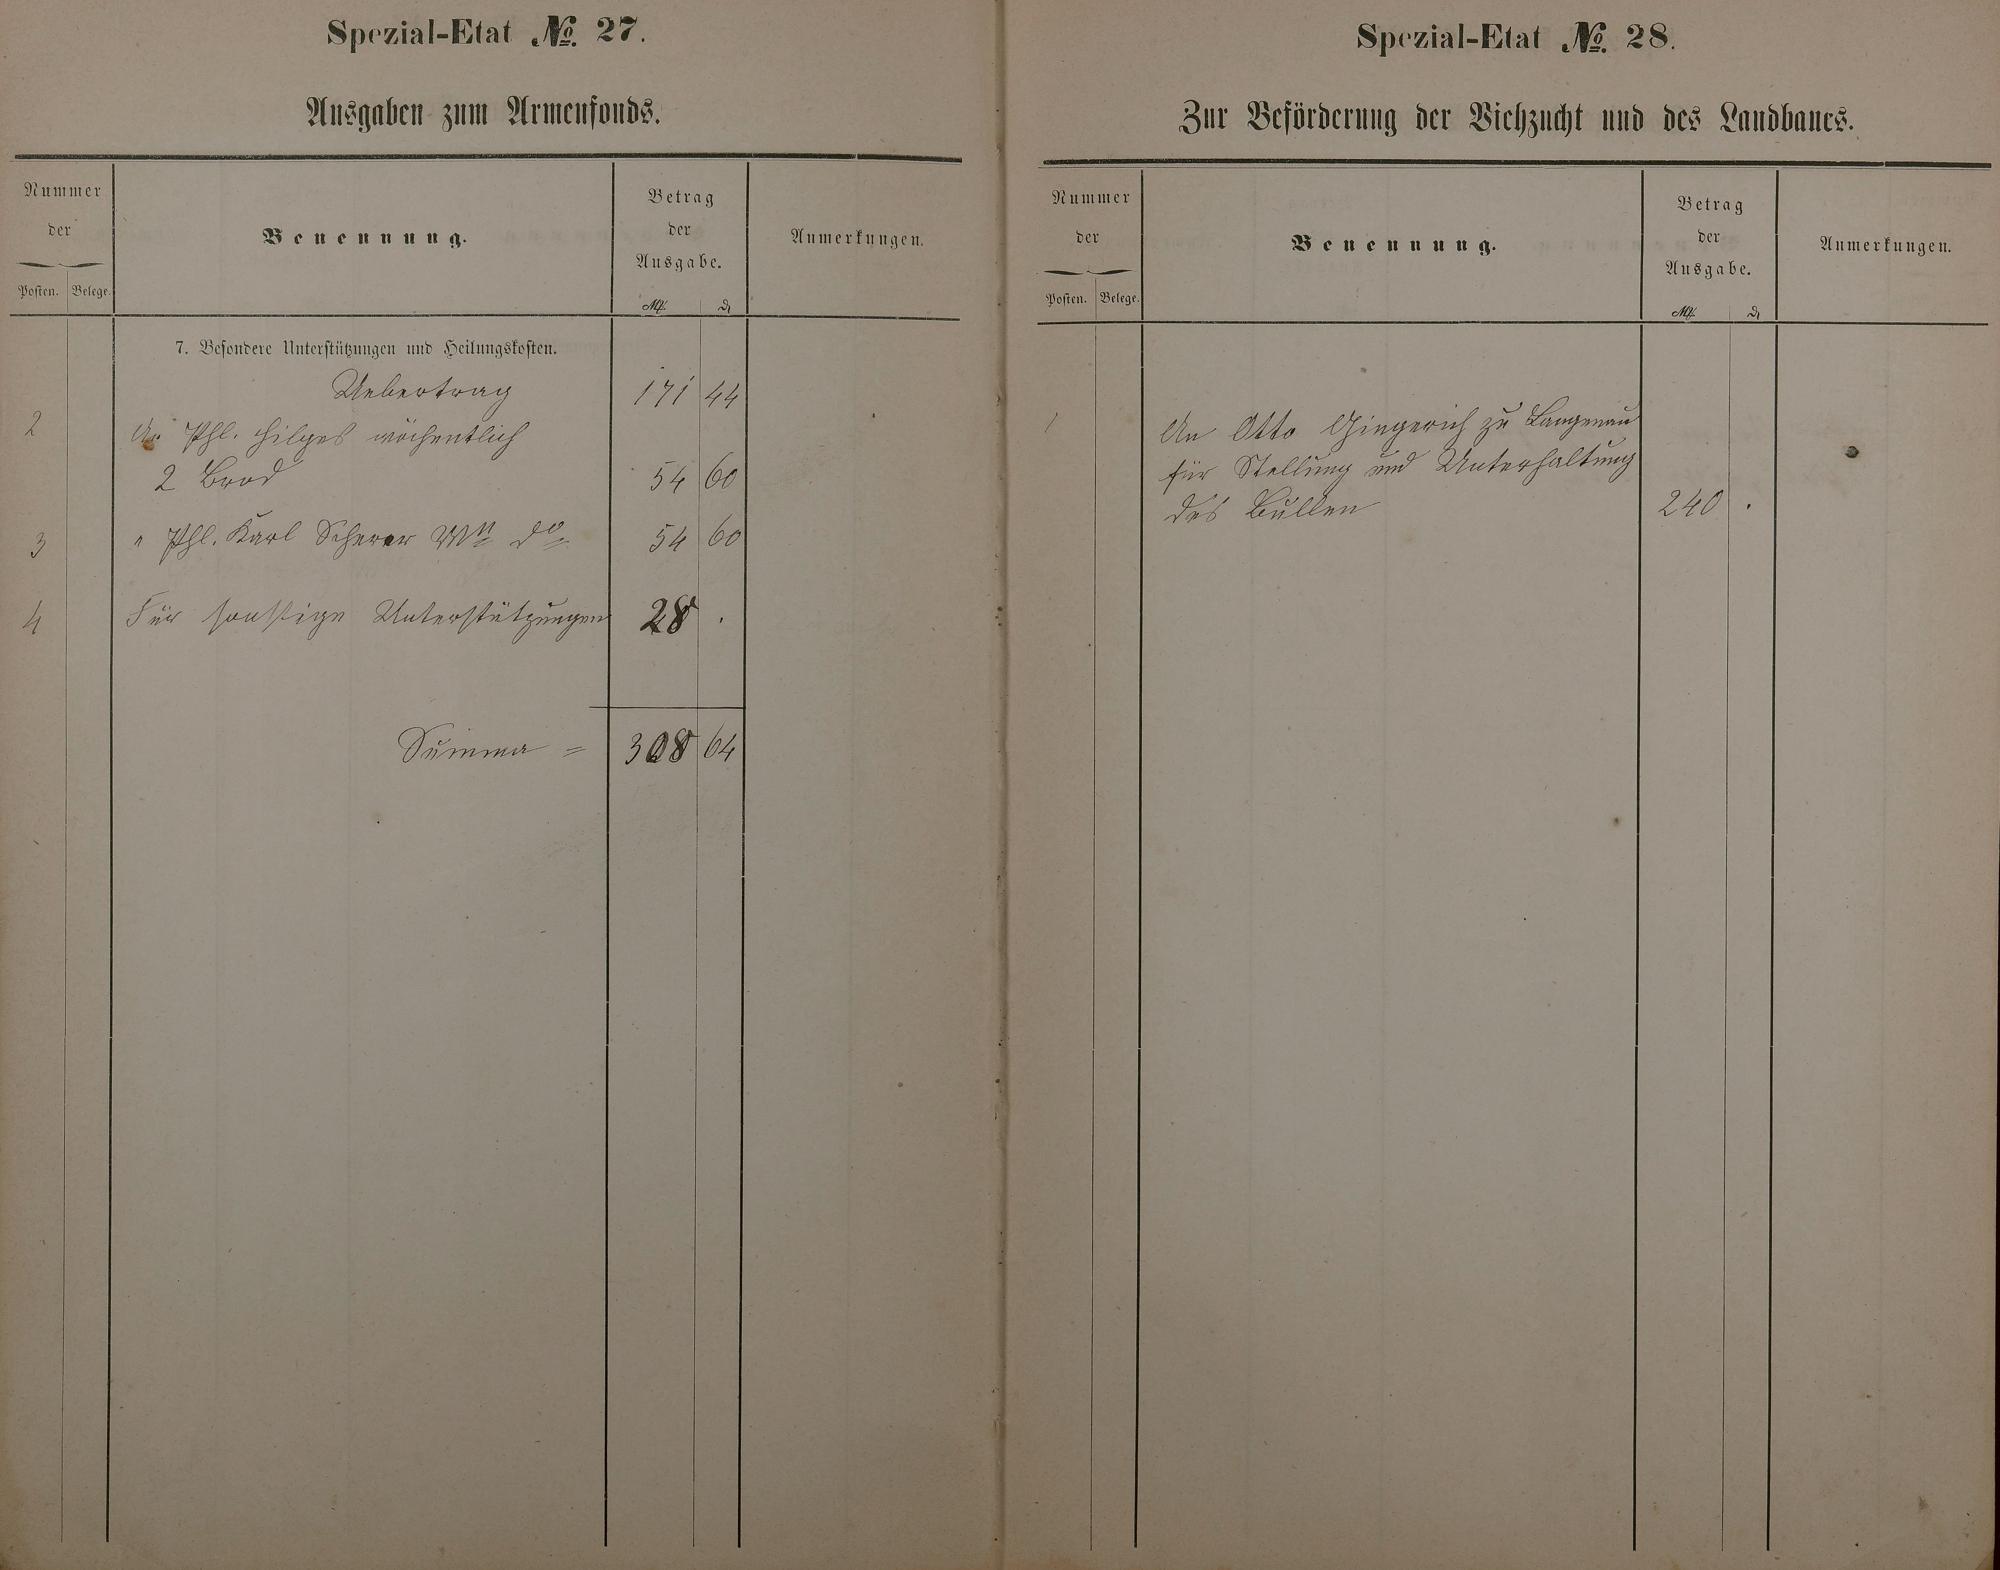 Spezial-Etat No. 27.
Ausgaben zum Armenfonds.
Nummer
der
Posten. Belege.
Benennung.
Betrag
der
Ausgabe.
M. d
Anmerkungen.
7. Besondere Unterstützungen und Heilungskosten.
Uebertrag 171 44
2 An Phl. Hilges wöchentlich
2 Brod 54 60
3 " Phl. Karl Scherer Wn do 54 60
4 Für sonstige Unterstützungen 28 .
Summa = 308 64
Spezial-Etat No. 28.
Zur Beförderung der Viehzucht und des Landbaues.
Nummer
der
Posten. Belege.
Benennung.
Betrag
der
Ausgabe.
M. d
Anmerkungen.
1 An Otto Gingerich zu Langenau
für Stellung und Unterhaltung
des Bullen 240 .